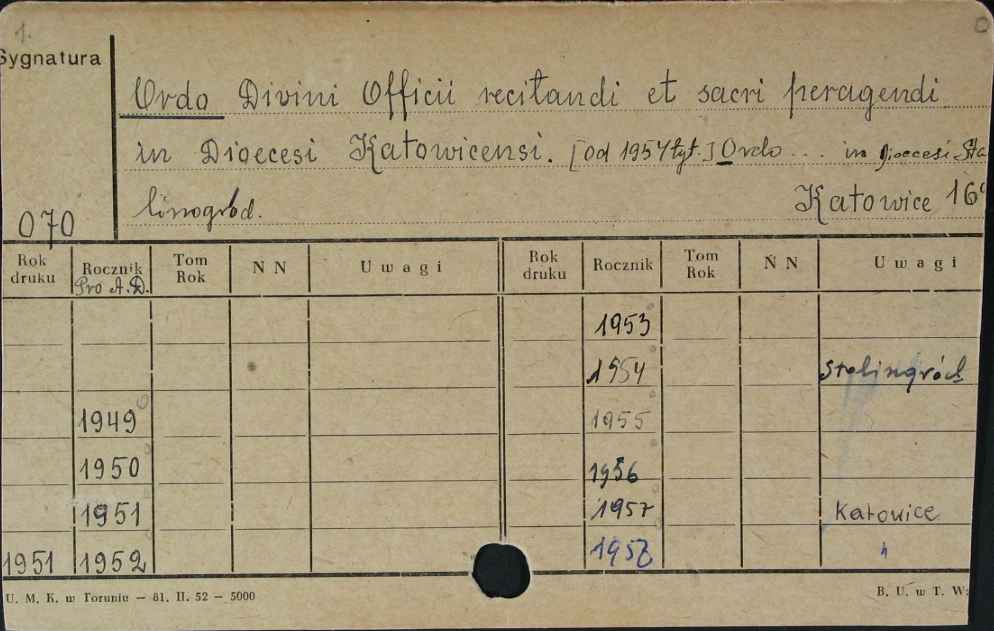 1.
Sygnatura
Ordo Divini Officii recitandi et sacri peragendi
in Dioecesi Katowicensi. [Od 1954 tyt.] Ordo ... in Dioecesi Sta
linogrod.
Katowice 16°
070
Rok druku Rocznik Pro A.D. Tom Rok N N Uwagi Rok druku Rocznik Tom Rok N N Uwagi
1953
1954 Stalinogród
1949 1955
1950 1956
1951 1957 Katowice
1951 1952 1958 "
U. M. K. w Toruniu — 81. II. 52 — 5000
B. U. w T. W: